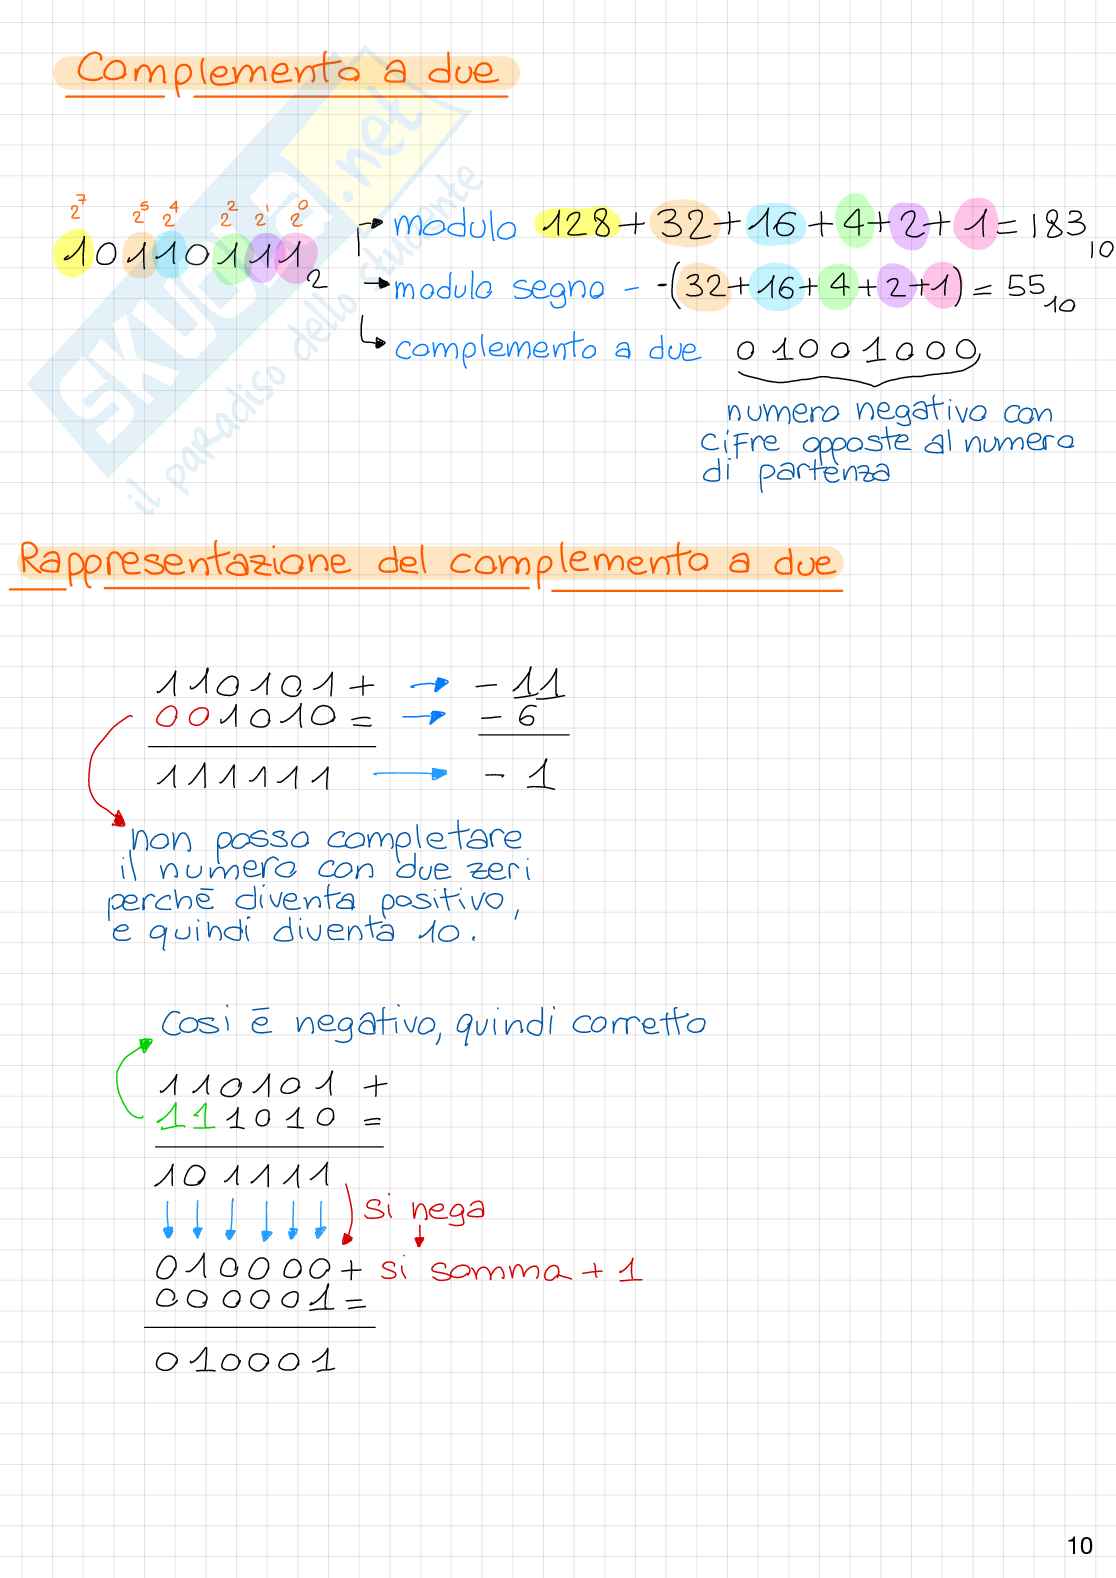 Complemento a due
2⁷ 2⁵ 2⁴ 2² 2¹ 2⁰
10110111₂
modulo 128+32+16+4+2+1=183₁₀
modulo segno - -(32+16+4+2+1) = 55₁₀
complemento a due 01001000,
numero negativo con
cifre opposte al numero
di partenza
SKUOLA.net
il paradiso dello studente
Rappresentazione del complemento a due
110101+ → -11
001010= → -6
111111 → -1
non posso completare
il numero con due zeri
perchē diventa positivo,
e quindi diventa 10.
Cosi ē negativo, quindi corretto
110101 +
111010 =
101111
si nega
010000+ si somma + 1
000001=
010001
10